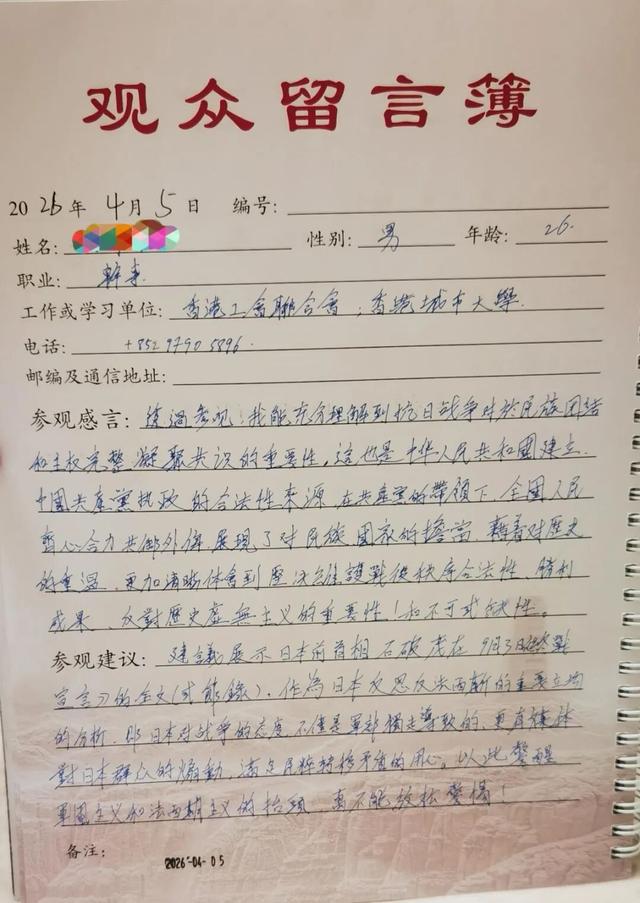 观众留言簿
2026年4月5日 编号:
姓名: 性别: 男 年龄: 26.
职业: 幹事
工作或学习单位: 香港工會聯合會；香港城市大學.
电话: +852 9790 5896.
邮编及通信地址:
参观感言: 透過參观,我能充分理解到抗日战争对於民族团结
和主权完整凝聚共识的重要性。这也是中华人民共和國建立、
中國共產黨执政的合法性來源.在共產黨的帶領下,全國人民
齊心合力共御外侮,展現了对民族國家的擔當.藉着对歷史
的重溫,更加清晰体會到堅決維護戰後秩序合法性、勝利
成果、反對歷史虛無主义的重要性!和不可或缺性。
参观建议: 建議展示日本前首相石破茂在9月3日《終戰
宣言》的全文(或節錄).作為日本反思反法西斯的重要立场
的分析.即日本对战争的态度,不僅是軍部獨走導致的,更有媒体
對日本群众的煽動,滿足民粹转移矛盾的用心。以此警醒
軍國主义和法西斯主义的抬頭,萬不能放松警惕!
备注:
2026-04-05